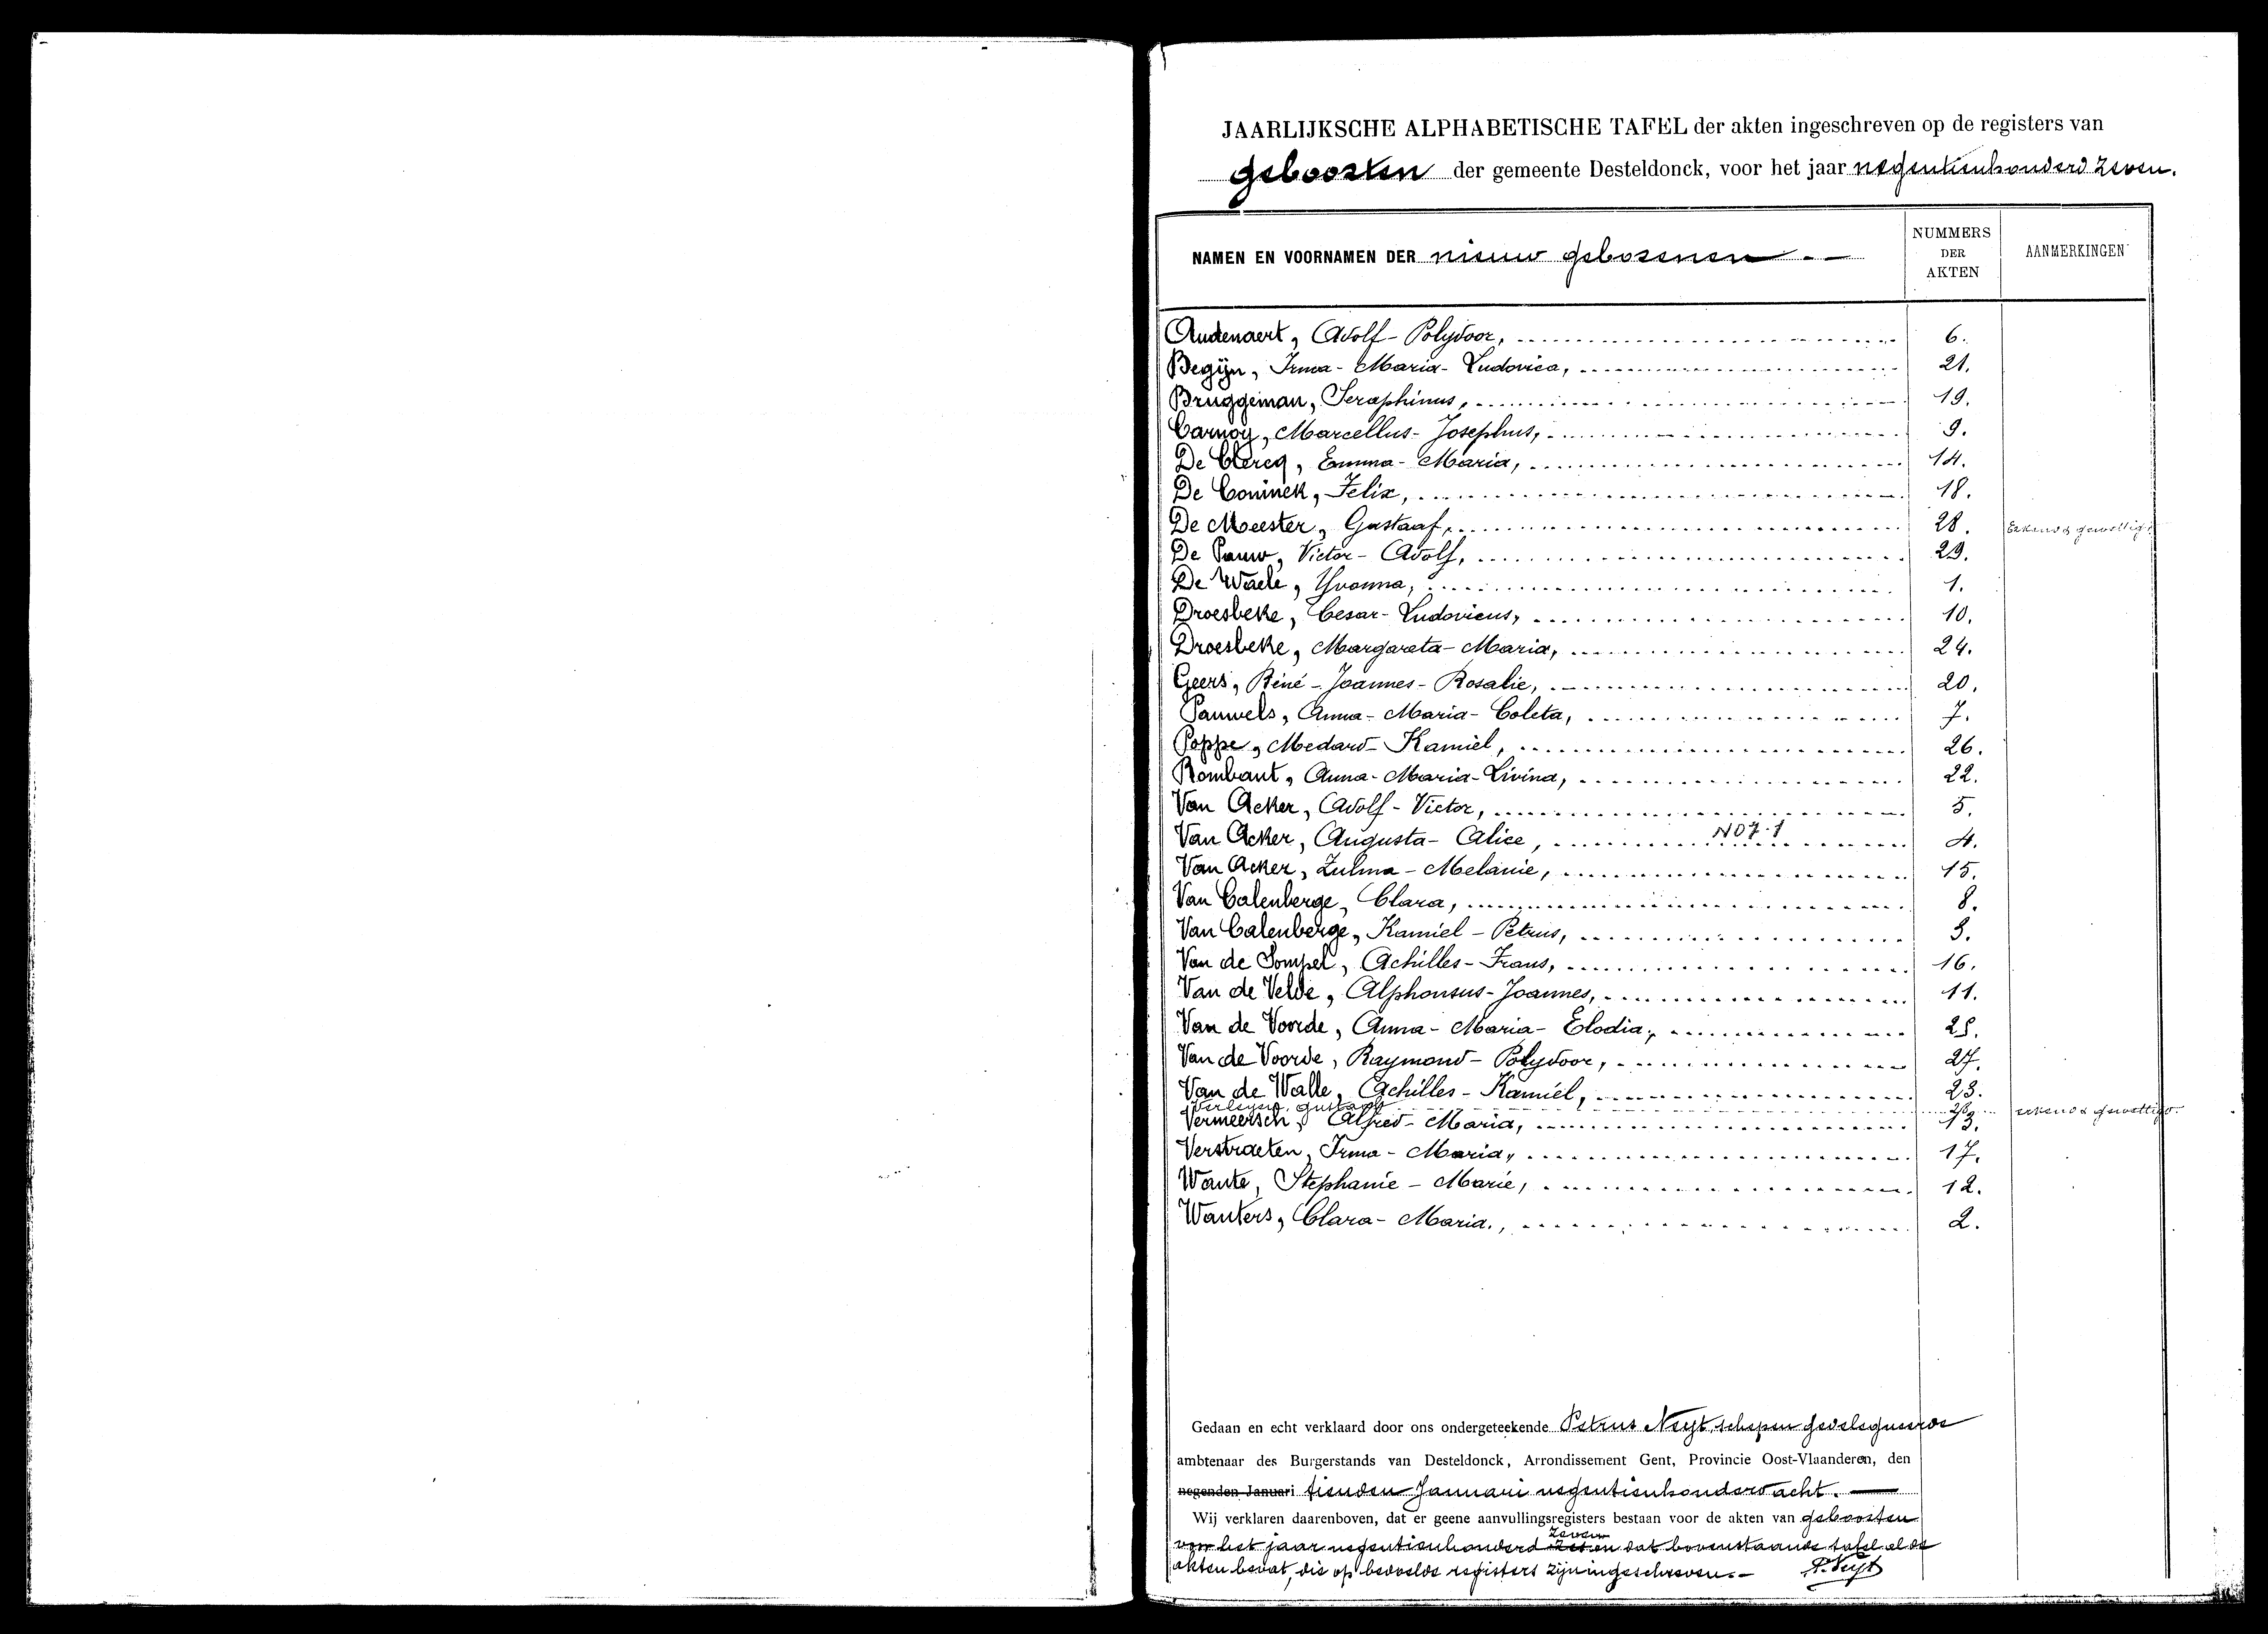 JAARLIJKSCHE ALPHABETISCHE TAFEL der akten ingeschreven op de registers van
geboorten der gemeente Desteldonck, voor het jaar negentienhonderd zeven.
NAMEN EN VOORNAMEN DER nieuw geborenen
NUMMERS DER AKTEN
AANMERKINGEN
Audenaert, Adolf-Polydoor, 6.
Begijn, Irma-Maria-Ludovica, 21.
Bruggeman, Seraphinus, 19.
Carnoy, Marcellus-Josephus, 9.
De Clercq, Emma-Maria, 14.
De Coninck, Felix, 18.
De Meester, Gustaaf, 28. Erkend & gewettigd
De Pauw, Victor-Adolf, 29.
De Waele, Yvonna, 1.
Droesbeke, Cesar-Ludovicus, 10.
Droesbeke, Margareta-Maria, 24.
Geers, Réné-Joannes-Rosalie, 20.
Pauwels, Anna-Maria-Coleta, 7.
Poppe, Medard-Kamiel, 26.
Rombaut, Anna-Maria-Livina, 22.
Van Acker, Adolf-Victor, 5.
Van Acker, Augusta-Alice, 4.
Van Acker, Zulma-Melanie, 15.
Van Calenberge, Clara, 8.
Van Calenberge, Kamiel-Petrus, 3.
Van de Sompel, Achilles-Frans, 16.
Van de Velde, Alphonsus-Joannes, 11.
Van de Voorde, Anna-Maria-Elodia, 25.
Van de Voorde, Raymond-Polydoor, 27.
Van de Walle, Achilles-Kamiel, 23.
Verleyen, Gustaaf 28 erkend & gewettigd.
Vermeersch, Alfred-Maria, 13.
Verstraeten, Irma-Maria, 17.
Wante, Stephanie-Marie, 12.
Wauters, Clara-Maria., 2.
Gedaan en echt verklaard door ons ondergeteekende Petrus Neyt, schepen gedelegueerde
ambtenaar des Burgerstands van Desteldonck, Arrondissement Gent, Provincie Oost-Vlaanderen, den
negenden Januari tienden Januari negentienhonderd acht.
Wij verklaren daarenboven, dat er geene aanvullingsregisters bestaan voor de akten van geboorten
voor het jaar negentienhonderd zeven en dat bovenstaande tafel al de
akten bevat, die op bedoelde registers zijn ingeschreven.- P. Neyt